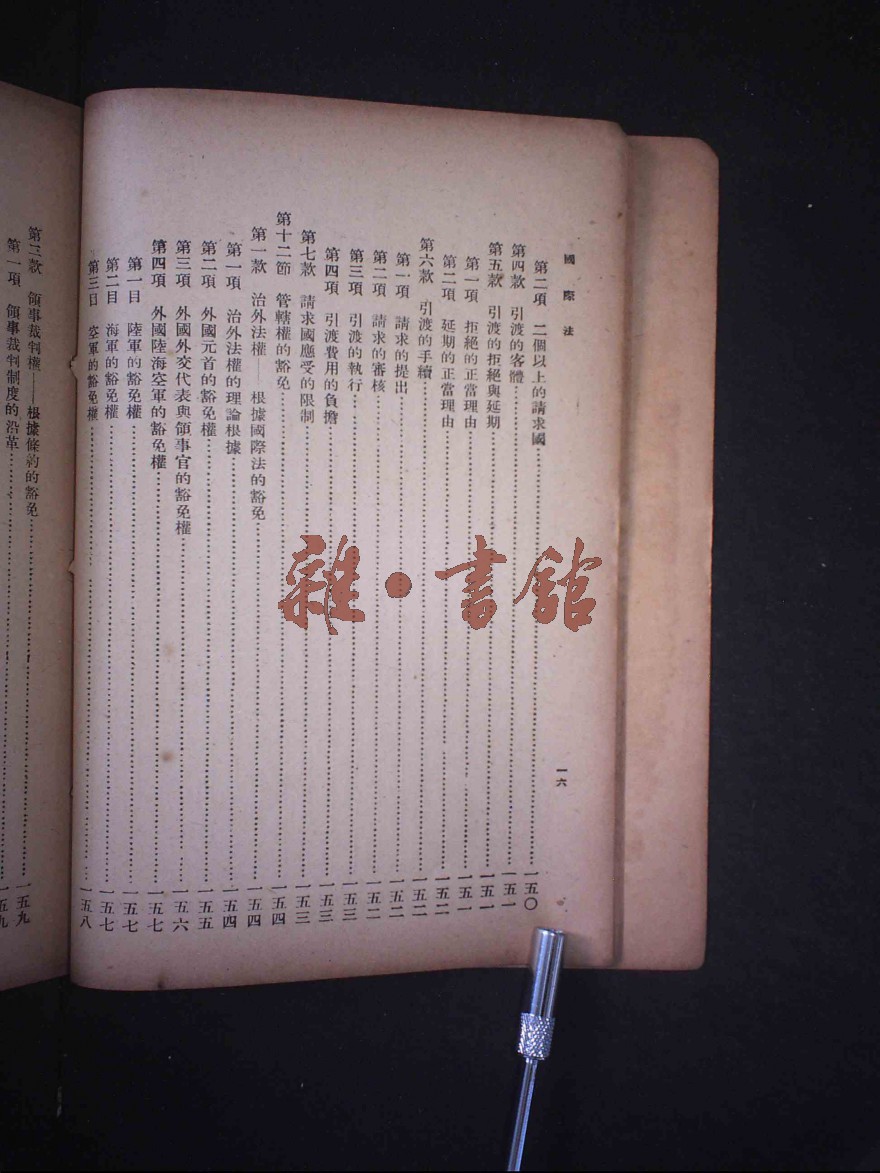 國際法
一六
第二項 二個以上的請求國……一五〇
第四款 引渡的客體……一五一
第五款 引渡的拒絕與延期……一五一
第一項 拒絕的正當理由……一五一
第二項 延期的正當理由……一五二
第六款 引渡的手續……一五二
第一項 請求的提出……一五二
第二項 請求的審核……一五二
第三項 引渡的執行……一五三
第四項 引渡費用的負擔……一五三
第七款 請求國應受的限制……一五三
第十二節 管轄權的豁免……一五四
第一款 治外法權——根據國際法的豁免……一五四
第一項 治外法權的理論根據……一五四
第二項 外國元首的豁免權……一五五
第三項 外國外交代表與領事官的豁免權……一五六
第四項 外國陸海空軍的豁免權……一五七
第一目 陸軍的豁免權……一五七
第二目 海軍的豁免權……一五七
第三目 空軍的豁免權……一五八
第三款 領事裁判權——根據條約的豁免……一五九
第一項 領事裁判制度的沿革……一五九
雜·書館